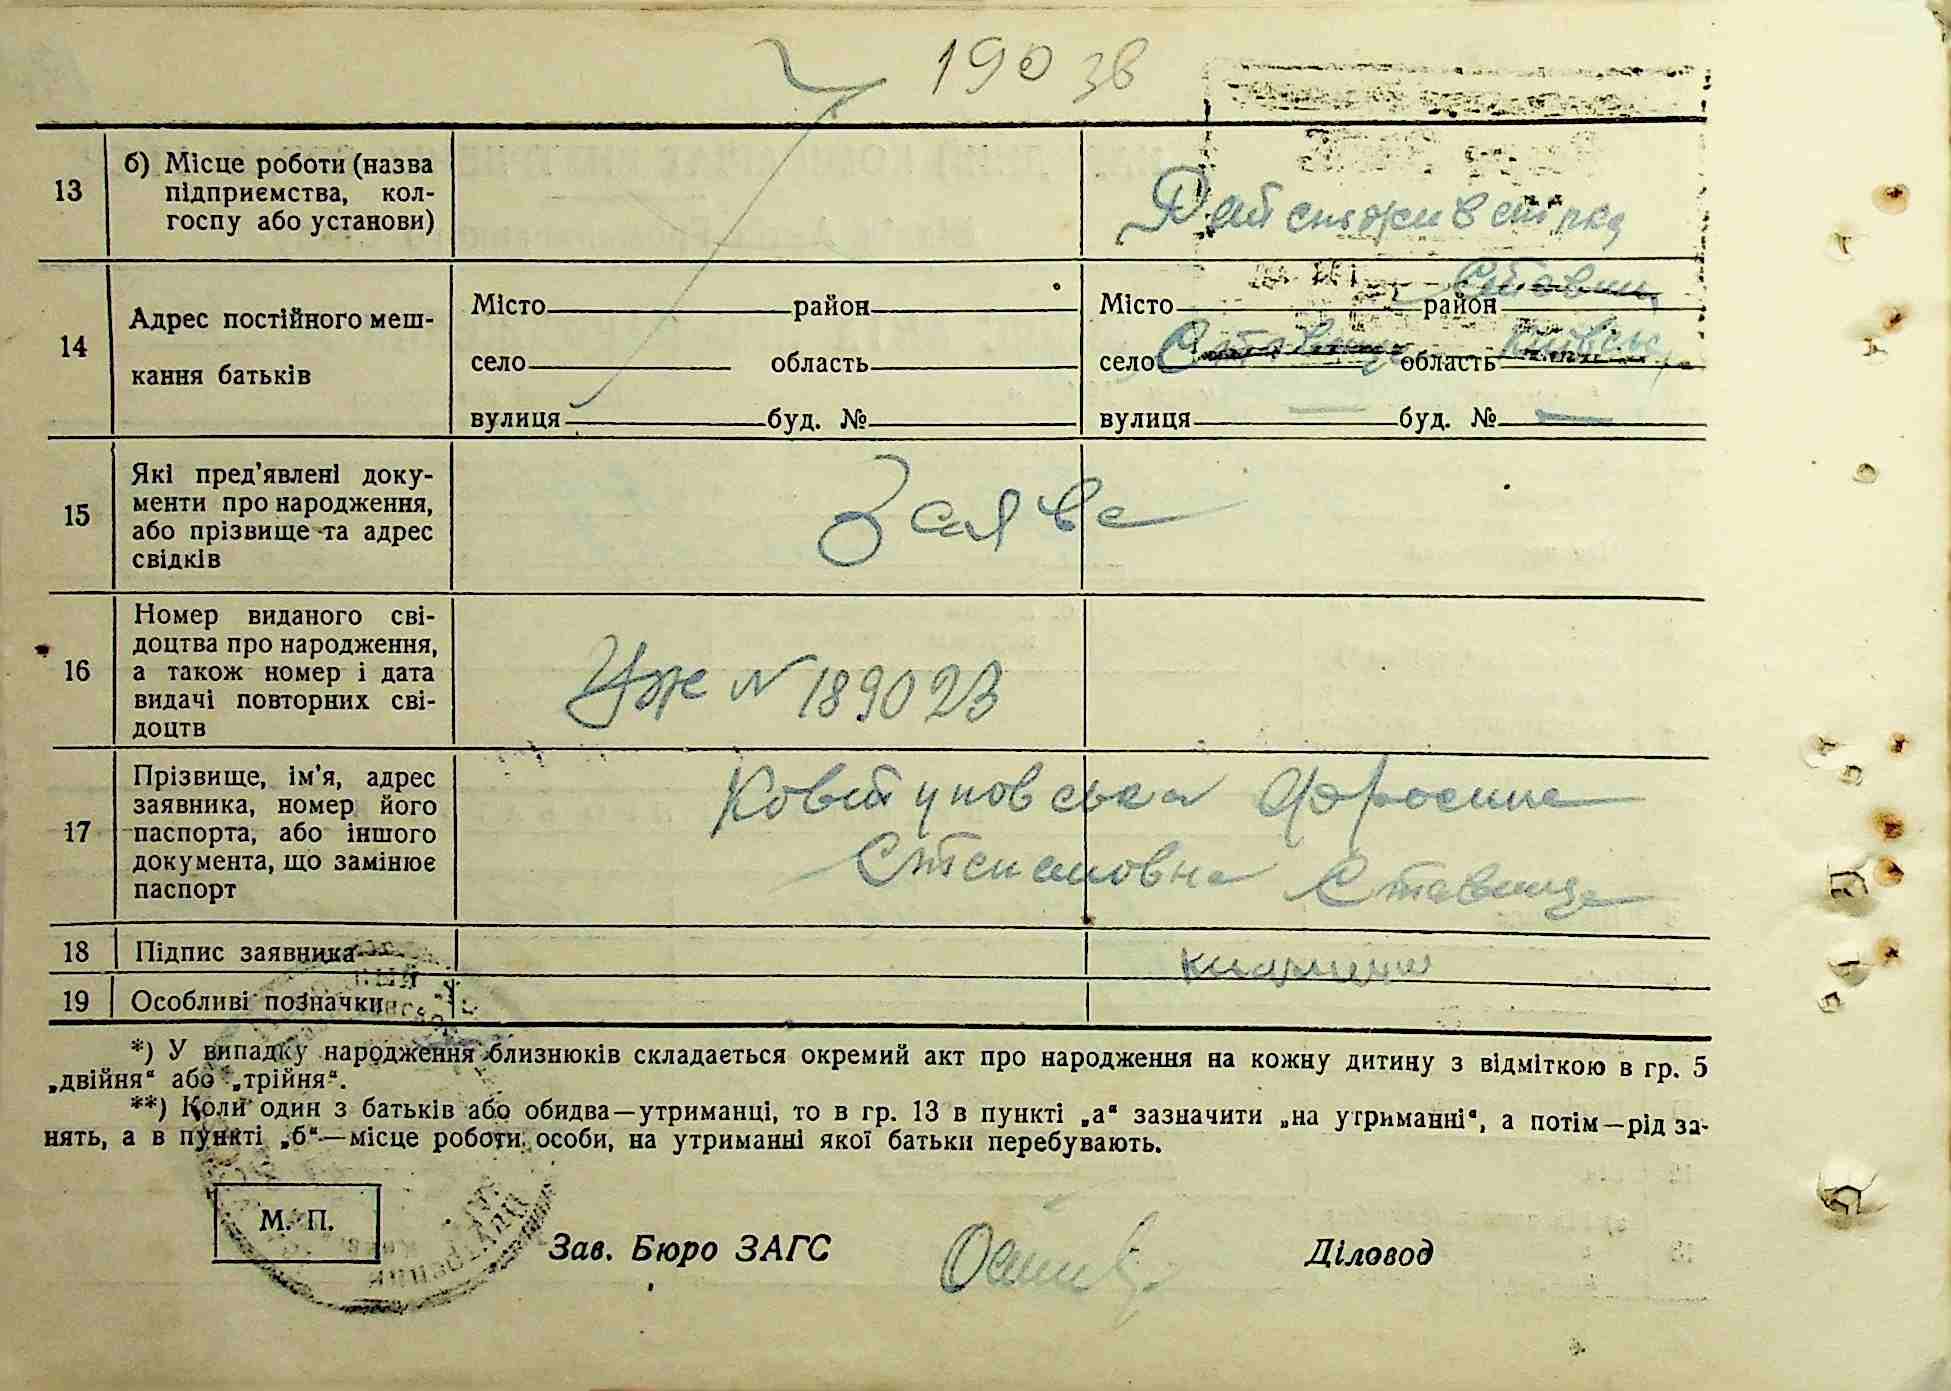 190 зв
13
б) Місце роботи (назва
підприємства, кол-
госпу або установи)
Райспоживспілка
14
Адрес постійного меш-
кання батьків
Місто район
село область
вулиця буд. №
Місто район Ставищ
село Ставище область Київськ
вулиця — буд. № —
15
Які пред'явлені доку-
менти про народження,
або прізвище та адрес
свідків
Заява
16
Номер виданого сві-
доцтва про народження,
а також номер і дата
видачі повторних сві-
доцтв
УЖ № 189023
17
Прізвище, ім'я, адрес
заявника, номер його
паспорта, або іншого
документа, що замінює
паспорт
Фросина
Степановна Ставище
18 Підпис заявника
19 Особливі позначки
*) У випадку народження близнюків складається окремий акт про народження на кожну дитину з відміткою в гр. 5
„двійня“ або „трійня“.
**) Коли один з батьків або обидва—утриманці, то в гр. 13 в пункті „а“ зазначити „на утриманні“, а потім—рід за-
нять, а в пункті „б“—місце роботи особи, на утриманні якої батьки перебувають.
М. П.
Зав. Бюро ЗАГС Діловод